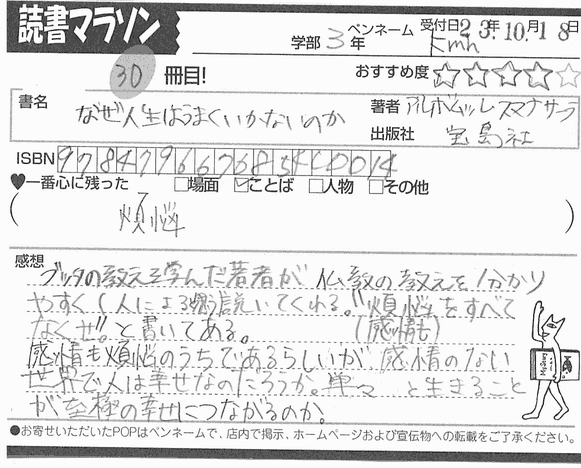 読書マラソン
学部 3年 ペンネーム 受付日23年10月18日
Fmh
30 冊目! おすすめ度
書名 なぜ人生はうまくいかないのか
著者 アルボムッレ スマナサーラ
出版社 宝島社
ISBN
♥一番心に残った □場面 ☑ことば □人物 □その他
( 煩悩 )
感想
ブッタの教えを学んだ著者が 仏教の教えを分かり
やすく(人による 説いてくれる。"煩悩"をすべて
なくせ"。と書いてある。 (感情も)
感情も煩悩のうちであるらしいが、感情のない
世界で人は幸せなのだろうか。単々 と生きること
が至極の幸せにつながるのか。
●お寄せいただいたPOPはペンネームで、店内で掲示、ホームページおよび宣伝物への転載をご了承ください。